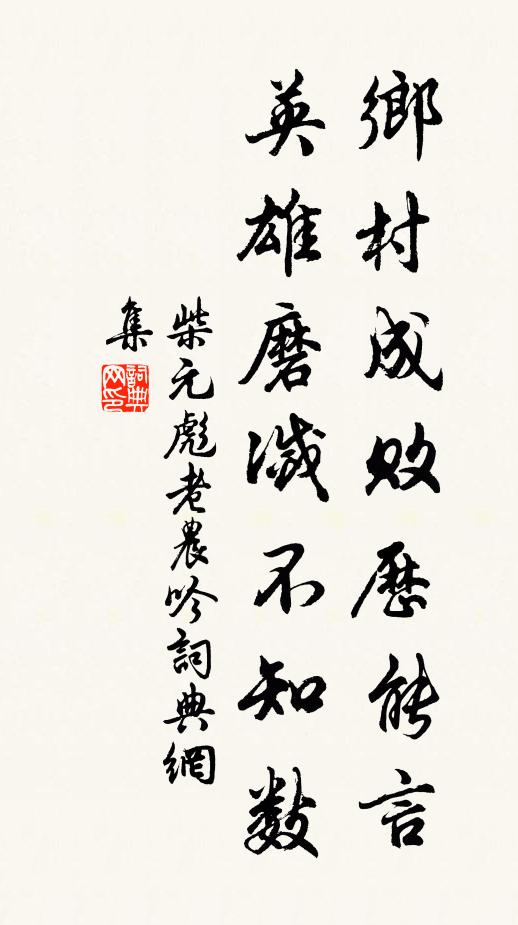 鄉村成敗歷能言
英雄磨滅不知數
柴元彪老農吟詞典網
集
詞典
网印